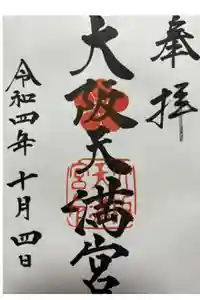 奉拝
大阪天満宮
令和四年十月四日